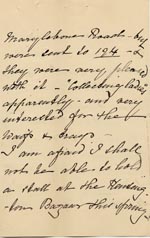 Marylebone Road - by
were sent to 194 - &
they were very pleased
with it - Collecting ladies
apparently - and very
interested for the
Waifs & Strays -
I am afraid I shall
not be able to hold
a stall at the Kensing-
ton Bazaar this spring -